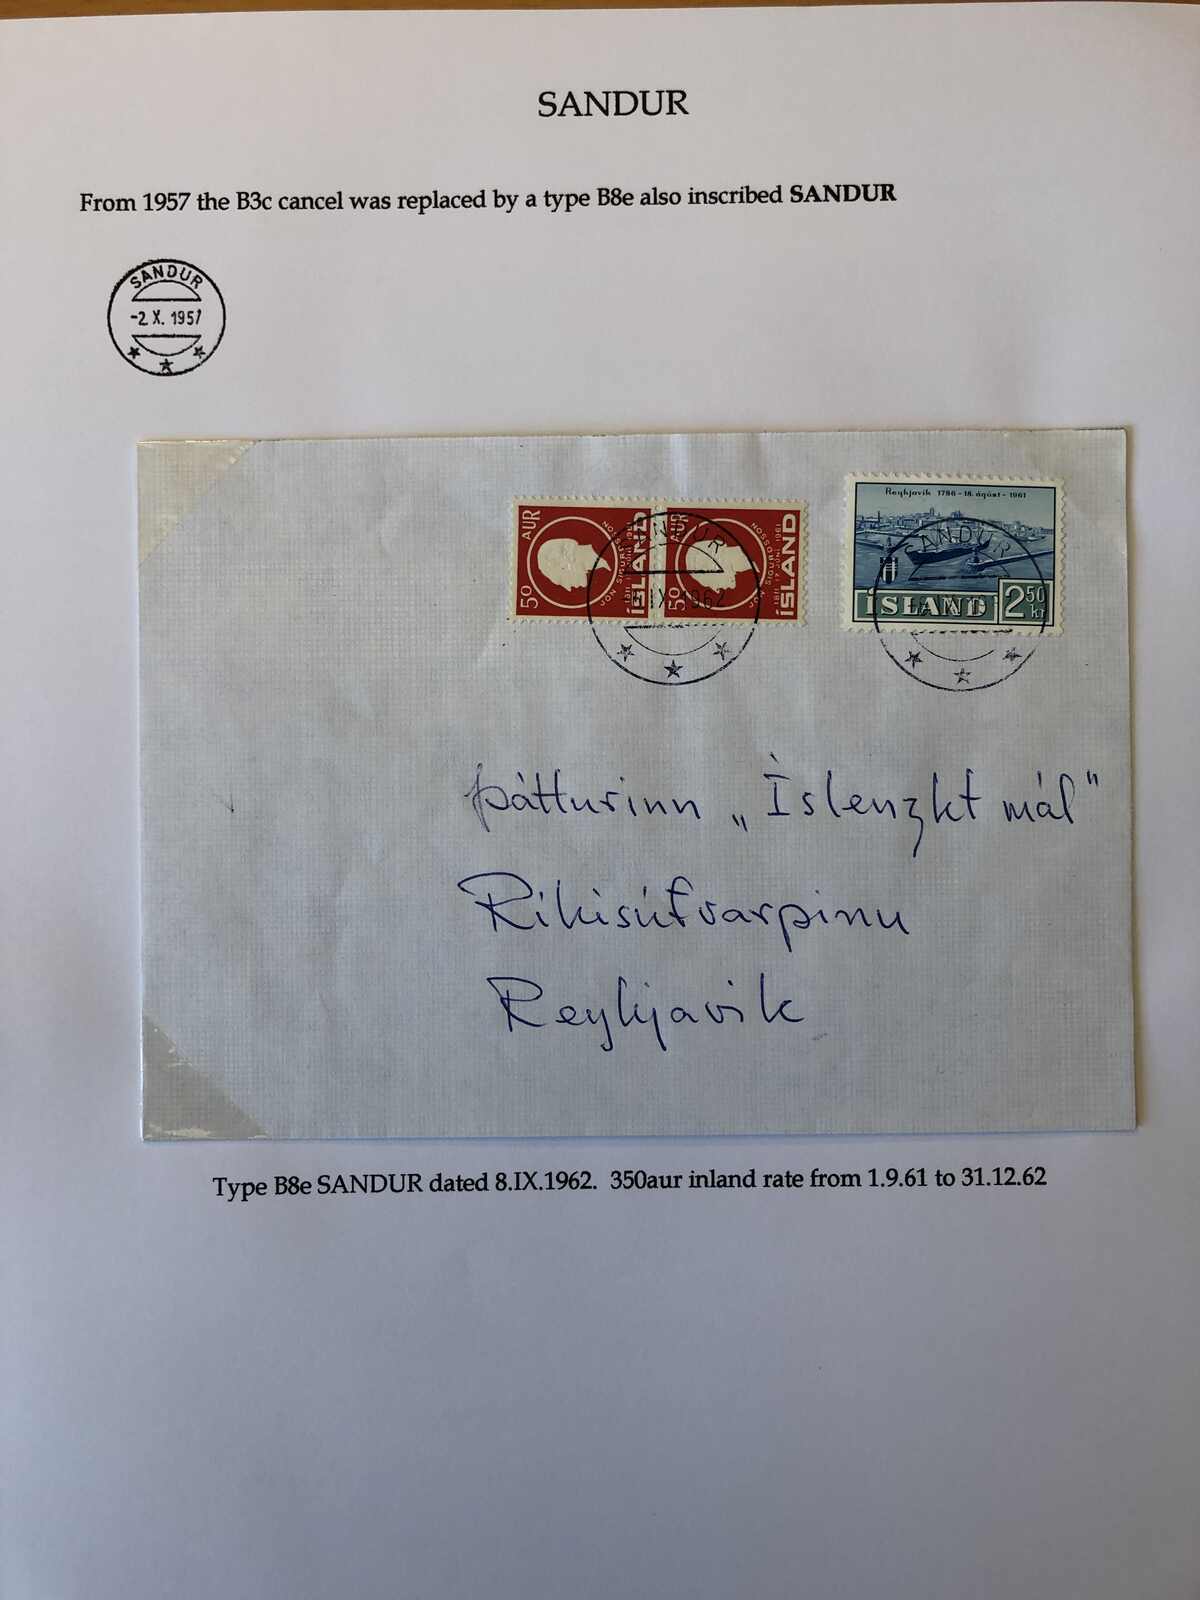 SANDUR
From 1957 the B3c cancel was replaced by a type B8e also inscribed SANDUR
SANDUR
-2 X. 1957
50 AUR
ÍSLAND
50 AUR
JÓN SIGURÐSSON
1811 17 JÚNÍ 1961
ÍSLAND
SANDUR
IX 1962
Reykjavík 1786 - 18. ágúst - 1961
ÍSLAND 2 50 kr
SANDUR
þátturinn „Íslenzkt mál"
Ríkisútvarpinu
Reykjavik
Type B8e SANDUR dated 8.IX.1962. 350aur inland rate from 1.9.61 to 31.12.62